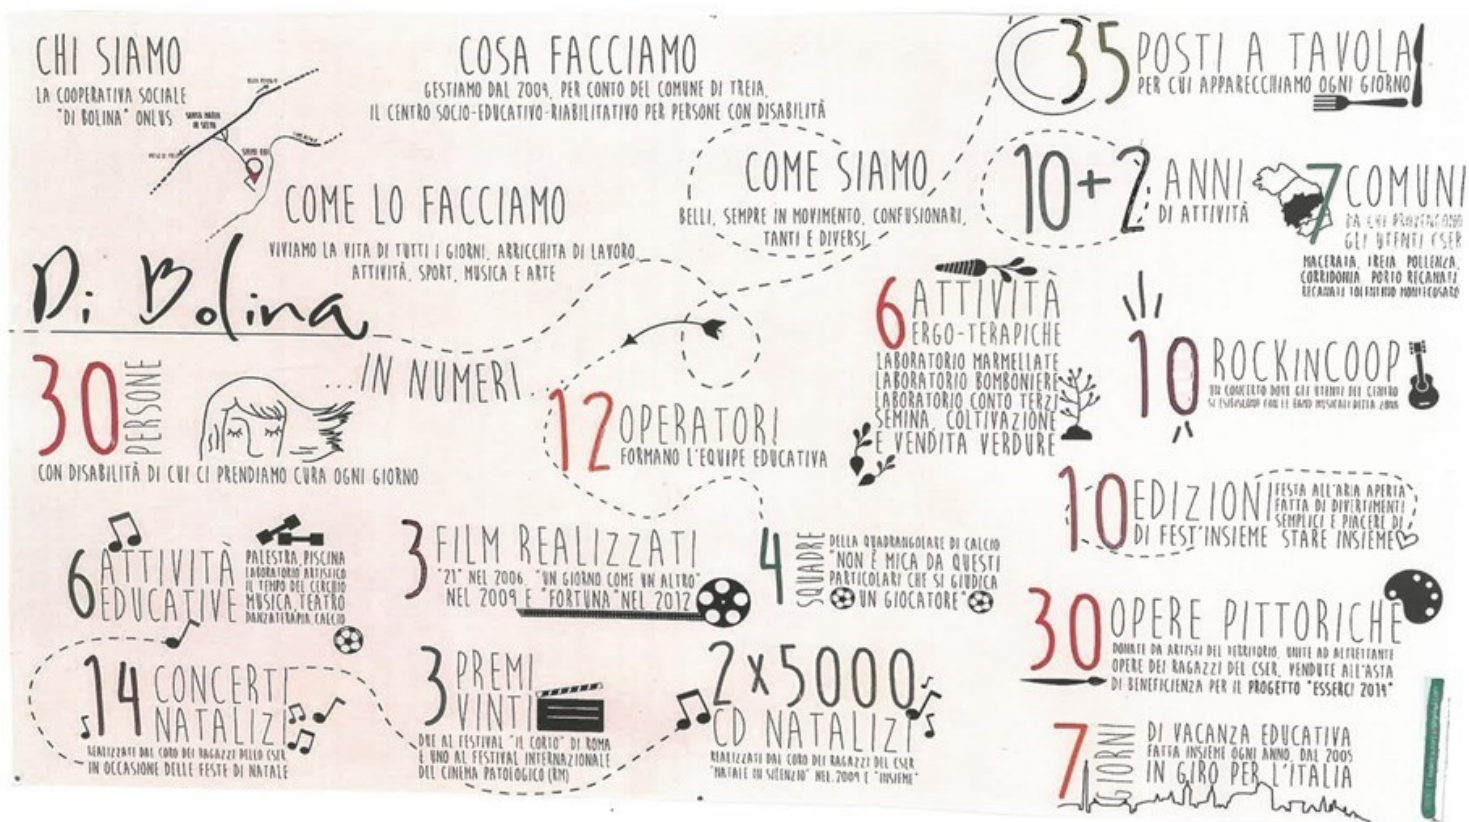 CHI SIAMO
LA COOPERATIVA SOCIALE
"DI BOLINA" ONLUS
SANTA MARIA
IN SELVA
SIAMO QUI
COSA FACCIAMO
GESTIAMO DAL 2009, PER CONTO DEL COMUNE DI TREIA,
IL CENTRO SOCIO-EDUCATIVO-RIABILITATIVO PER PERSONE CON DISABILITÀ
COME LO FACCIAMO
VIVIAMO LA VITA DI TUTTI I GIORNI, ARRICCHITA DI LAVORO,
ATTIVITÀ, SPORT, MUSICA E ARTE
COME SIAMO
BELLI, SEMPRE IN MOVIMENTO, CONFUSIONARI,
TANTI E DIVERSI
35 POSTI A TAVOLA
PER CUI APPARECCHIAMO OGNI GIORNO
10+2 ANNI
DI ATTIVITÀ
7 COMUNI
DA CUI PROVENGONO
GLI UTENTI CSER
MACERATA, TREIA POLLENZA,
CORRIDONIA PORTO RECANATI,
RECANATI TOLENTINO MONTECOSARO
Di Bolina
...IN NUMERI
30 PERSONE
CON DISABILITÀ DI CUI CI PRENDIAMO CURA OGNI GIORNO
12 OPERATORI
FORMANO L'EQUIPE EDUCATIVA
6 ATTIVITÀ
ERGO-TERAPICHE
LABORATORIO MARMELLATE
LABORATORIO BOMBONIERE
LABORATORIO CONTO TERZI
SEMINA, COLTIVAZIONE
E VENDITA VERDURE
10 ROCKINCOOP
UN CONCERTO DOVE GLI UTENTI DEL CENTRO
SI ESIBISCONO CON LE BAND MUSICALI DELLA ZONA
10 EDIZIONI
DI FEST'INSIEME
FESTA ALL'ARIA APERTA
FATTA DI DIVERTIMENTI
SEMPLICI E PIACERE DI
STARE INSIEME
6 ATTIVITÀ
EDUCATIVE
PALESTRA, PISCINA
LABORATORIO ARTISTICO
IL TEMPO DEL CERCHIO
MUSICA, TEATRO
DANZATERAPIA CALCIO
3 FILM REALIZZATI
"21" NEL 2006, "UN GIORNO COME UN ALTRO"
NEL 2009 E "FORTUNA" NEL 2012
4 SQUADRE
DELLA QUADRANGOLARE DI CALCIO
"NON È MICA DA QUESTI
PARTICOLARI CHE SI GIUDICA
UN GIOCATORE"
30 OPERE PITTORICHE
DONATE DA ARTISTI DEL TERRITORIO, UNITE AD ALTRETTANTE
OPERE DEI RAGAZZI DEL CSER, VENDUTE ALL'ASTA
DI BENEFICIENZA PER IL PROGETTO "ESSERCI 2014"
14 CONCERTI
NATALIZI
REALIZZATI DAL CORO DEI RAGAZZI DELLO CSER
IN OCCASIONE DELLE FESTE DI NATALE
3 PREMI
VINTI
DUE AL FESTIVAL "IL CORTO" DI ROMA
E UNO AL FESTIVAL INTERNAZIONALE
DEL CINEMA PATOLOGICO (RM)
2x5000
CD NATALIZI
REALIZZATI DAL CORO DEI RAGAZZI DEL CSER
"NATALE IN SILENZIO" NEL 2009 E "INSIEME"
7 GIORNI
DI VACANZA EDUCATIVA
FATTA INSIEME OGNI ANNO, DAL 2005
IN GIRO PER L'ITALIA